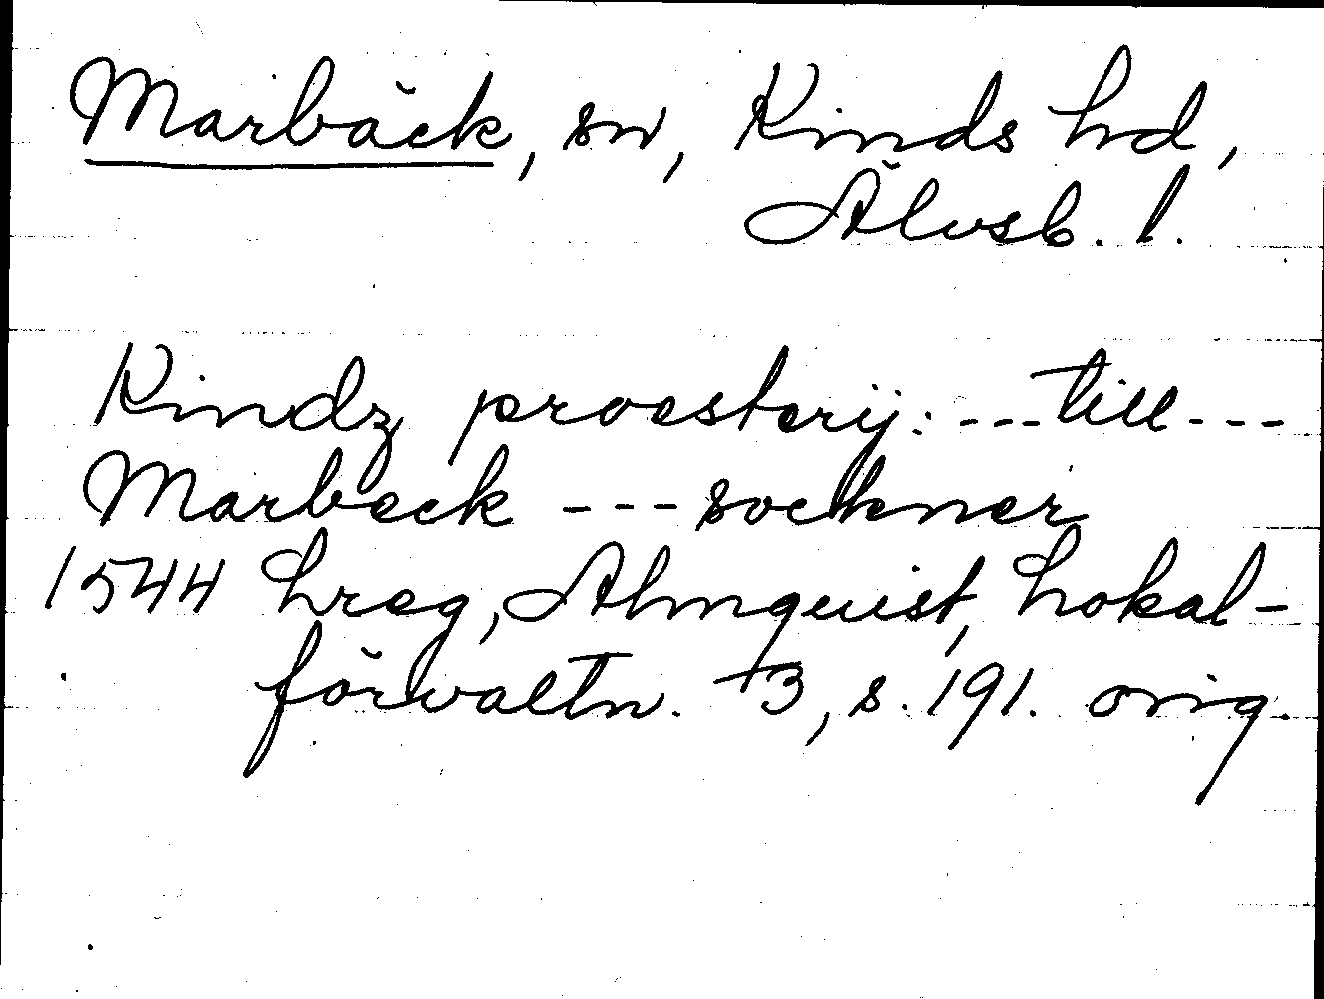 Marbäck, sn, Kinds hd,
Älvsb. l.
Kindz proesterij: --- till ---
Marbeck --- sockner
1544 Lreg, Almquist, Lokal-
förvaltn. +3, s. 191. orig.